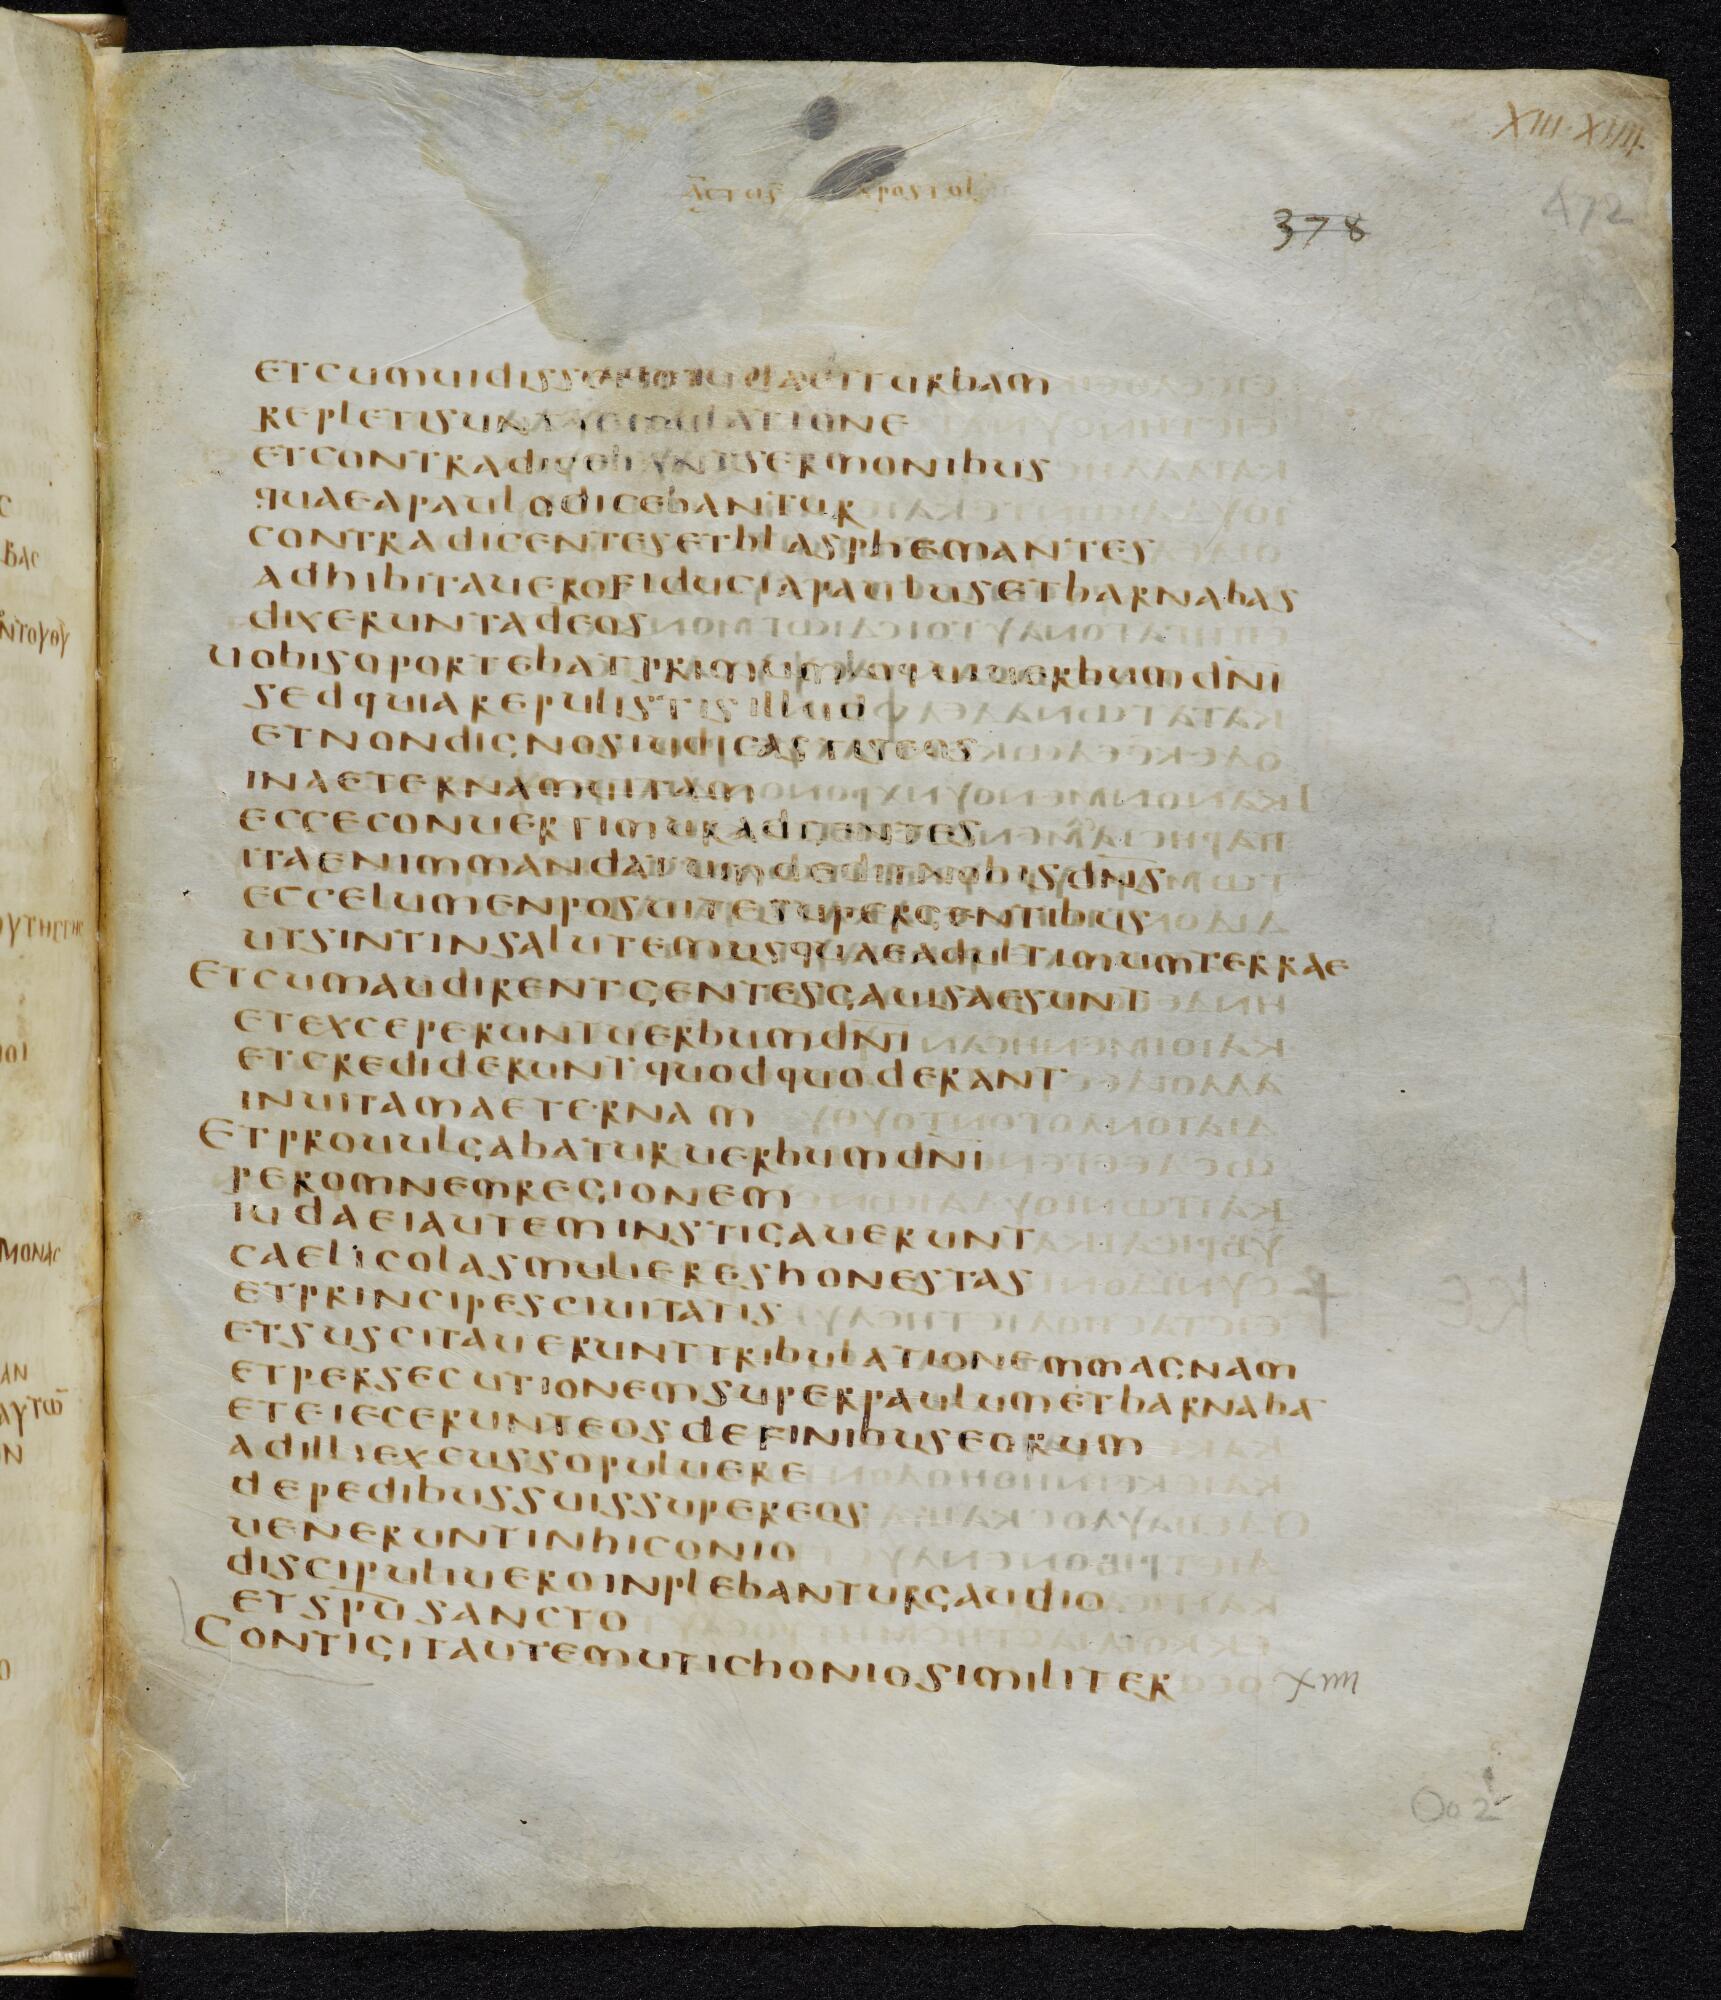 XIII·XIIII
ACTUS APOSTOL
472
378
ETCUMUIDISSENTIUDAEITURBAM
REPLETISUNTAEMULATIONE
ETCONTRADIXERUNTSERMONIBUS
QUAEAPAULODICEBANTUR
CONTRADICENTESETBLASPHEMANTES
ADHIBITAUEROFIDUCIAPAULUSETBARNABAS
DIXERUNTADEOS
UOBISOPORTEBATPRIMUMLOQUIUERBUMDN̄I
SEDQUIAREPULISTISILLUD
ETNONDIGNOSIUDICASTISEOS
INAETERNAMUITAM
ECCECONUERTIMURADGENTES
ITAENIMMANDATUMDEDITNOBISDN̄S
ECCELUMENPOSUITETUPERGENTIBUS
UTSINTINSALUTEMUSQUAEADULTIMUMTERRAE
ETCUMAUDIRENTGENTESGAUISAESUNT
ETEXCEPERUNTUERBUMDN̄I
ETCREDIDERUNTQUODQUODERANT
INUITAMAETERNAM
ETPROUULGABATURUERBUMDN̄I
PEROMNEMREGIONEM
IUDAEIAUTEMINSTIGAUERUNT
CAELICOLASMULIERESHONESTAS
ETPRINCIPESCIUITATIS
ETSUSCITAUERUNTTRIBULATIONEMMAGNAM
ETPERSECUTIONEMSUPERPAULUMETBARNABA
ETEIECERUNTEOSDEFINIBUSEORUM
ADILLIEXCUSSOPULUERE
DEPEDIBUSSUISSUPEREOS
UENERUNTINHICONIO
DISCIPULIUEROINPLEBANTURGAUDIO
ETSPŪSANCTO
CONTIGITAUTEMUTICHONIOSIMILITER
XIIII
Oo 2